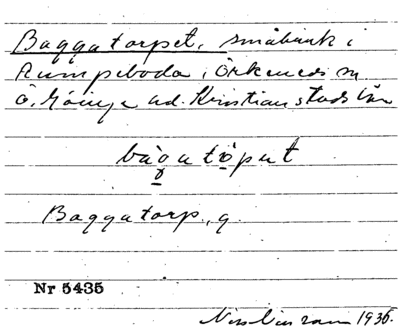 Baggatorpet, småbruk i
Rumpeboda, Örkeneds sn
Ö. Göinge hd. Kristianstads län
bàgatò̤put
Baggatorp, g.
Nr 5435
1936.